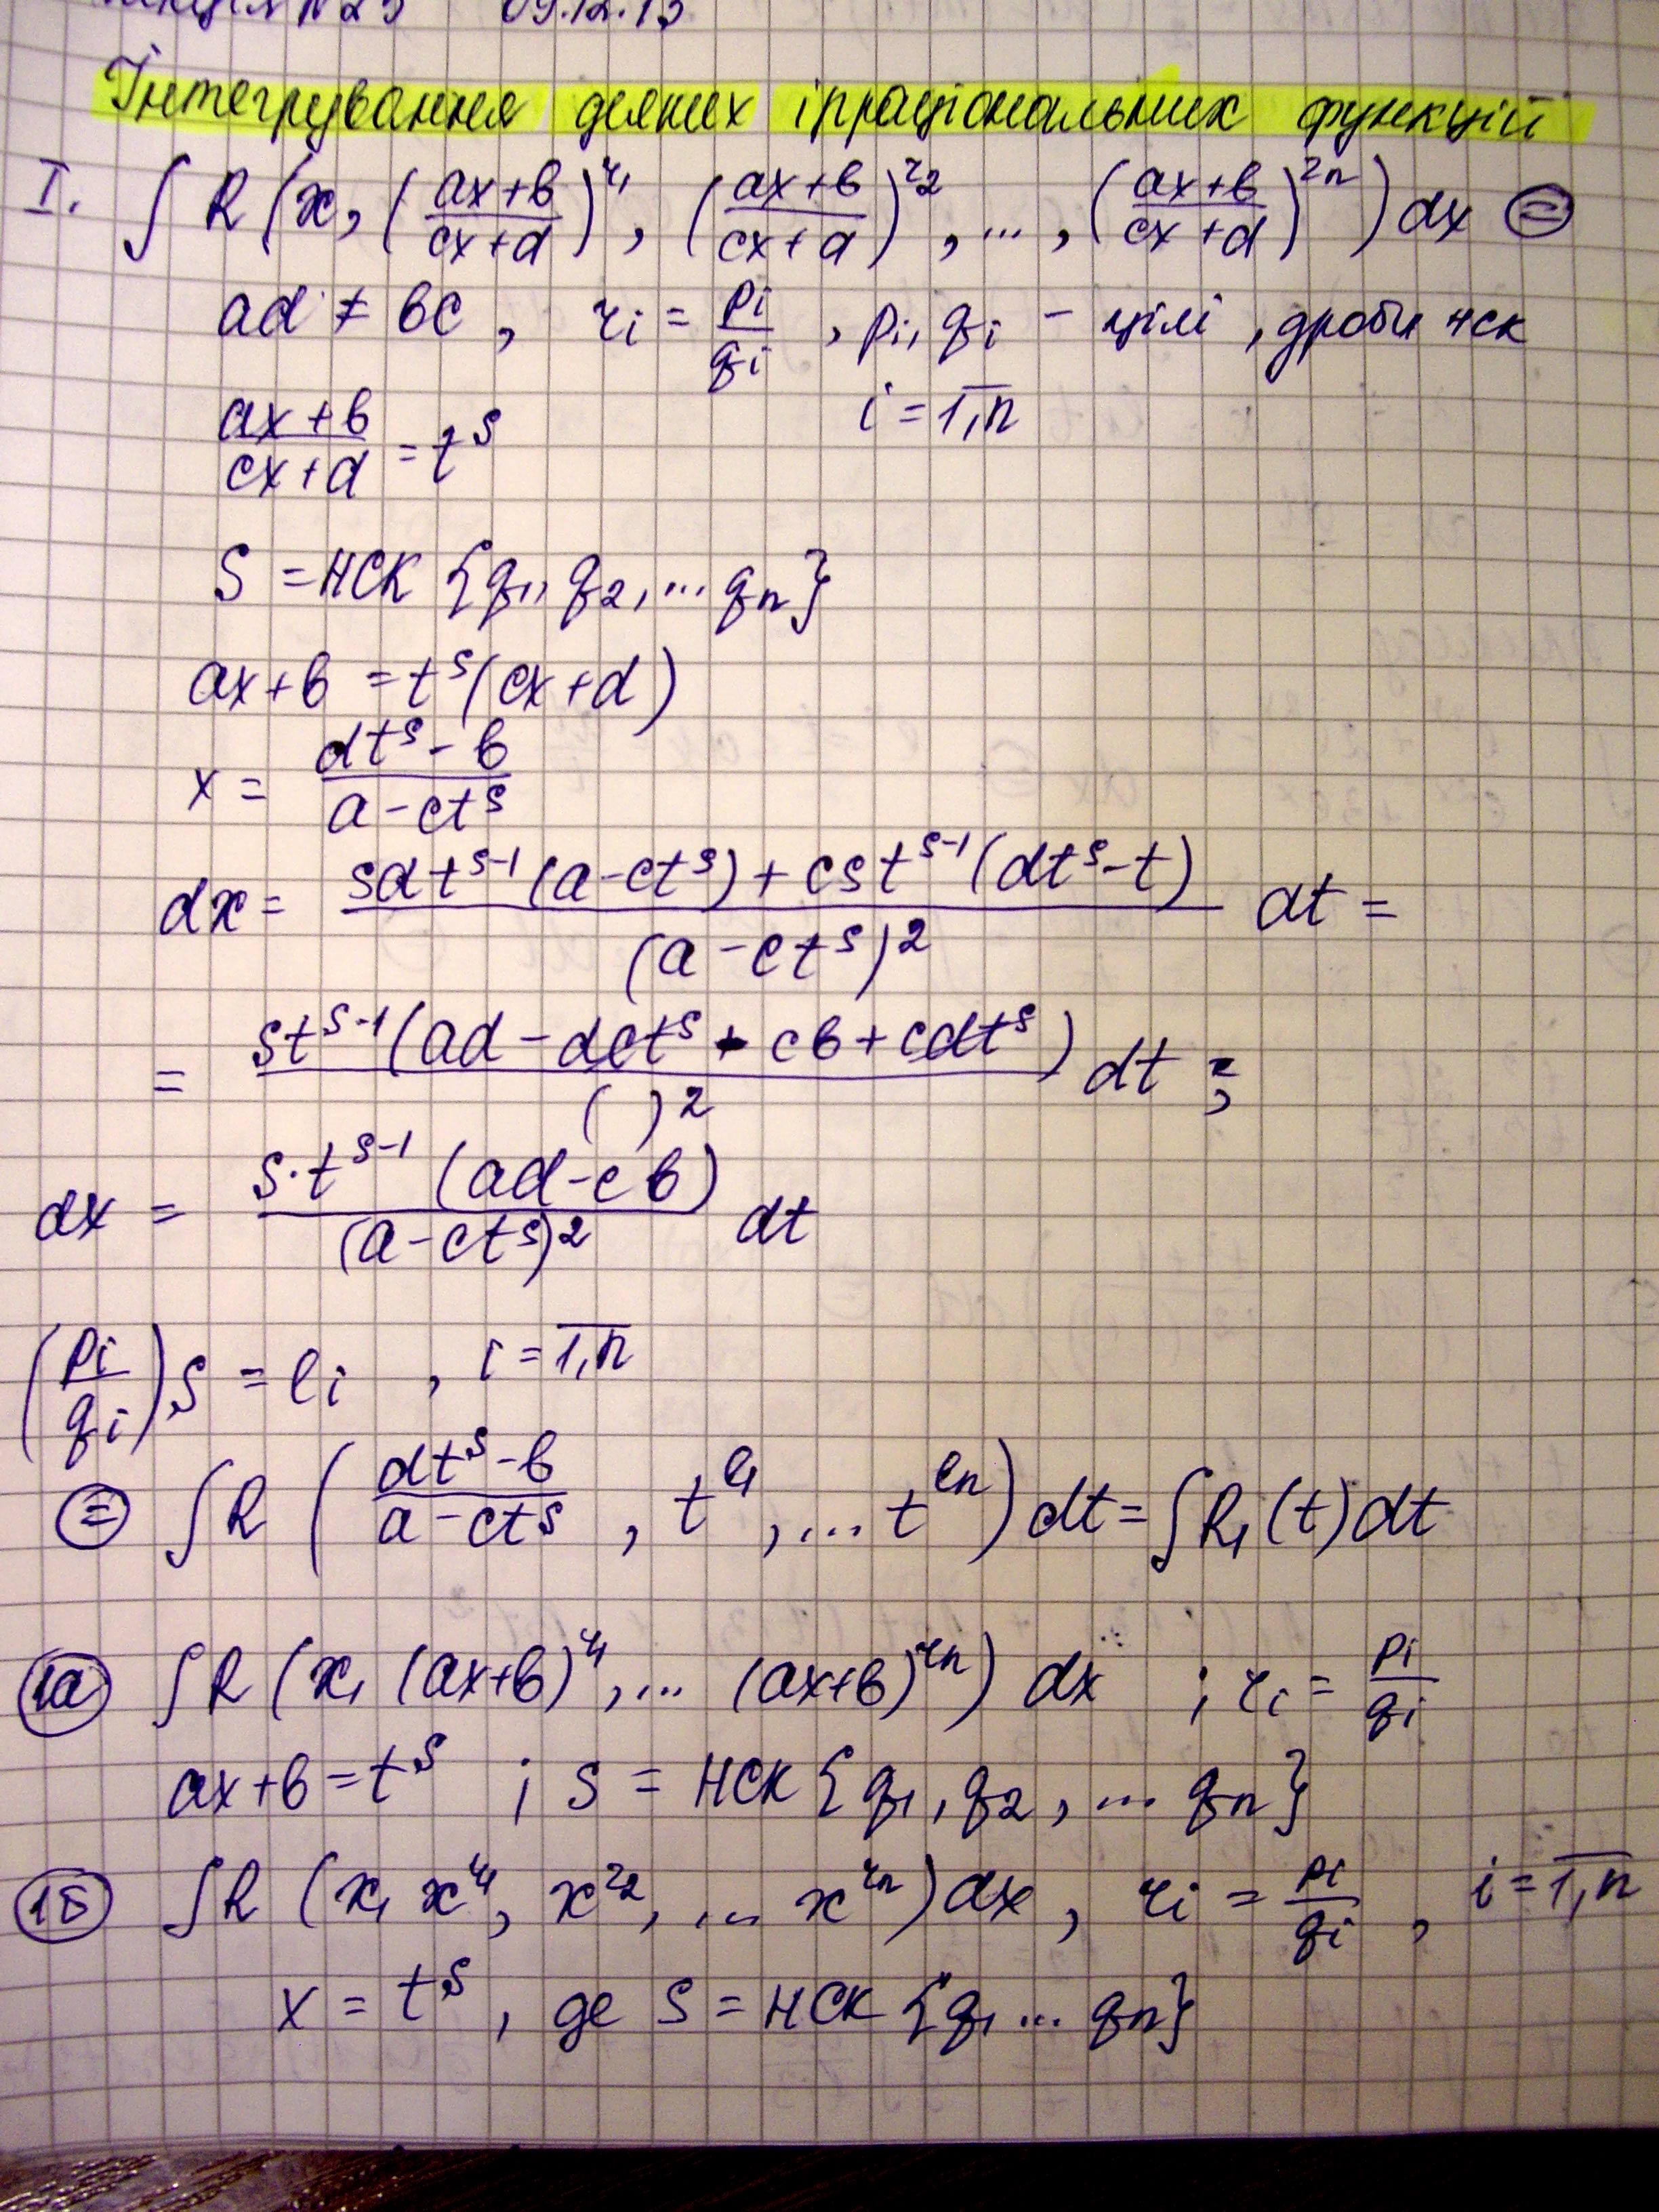 №23 09.12.13
Інтегрування деяких ірраціональних функцій
I. ∫ R (x, ((ax+b)/(cx+d))^r₁, ((ax+b)/(cx+d))^r₂, ..., ((ax+b)/(cx+d))^rₙ) dx ⊜
ad ≠ bc, rᵢ = pᵢ/qᵢ, pᵢ, qᵢ – цілі, дроби нск
i = 1,n̅
(ax+b)/(cx+d) = t^s
S = НСК {q₁, q₂, ... qₙ}
ax+b = t^s (cx+d)
x = (dt^s - b)/(a - ct^s)
dx = (sdt^(s-1) (a - ct^s) + cst^(s-1) (dt^s - t))/(a - ct^s)² dt =
= (st^(s-1) (ad - dct^s - cb + cdt^s))/( )² dt ;
dx = (s·t^(s-1) (ad - cb))/(a - ct^s)² dt
(pᵢ/qᵢ) S = lᵢ , i = 1,n̅
⊜ ∫ R ((dt^s - b)/(a - ct^s), t^l₁, ... t^lₙ) dt = ∫ R₁(t) dt
1а ∫ R (x, (ax+b)^r₁, ... (ax+b)^rₙ) dx ; rᵢ = pᵢ/qᵢ
ax+b = t^s ; s = НСК {q₁, q₂, ... qₙ}
1б ∫ R (x, x^r₁, x^r₂, ... x^rₙ) dx, rᵢ = pᵢ/qᵢ, i = 1,n̅
x = t^s, де s = НСК {q₁ ... qₙ}